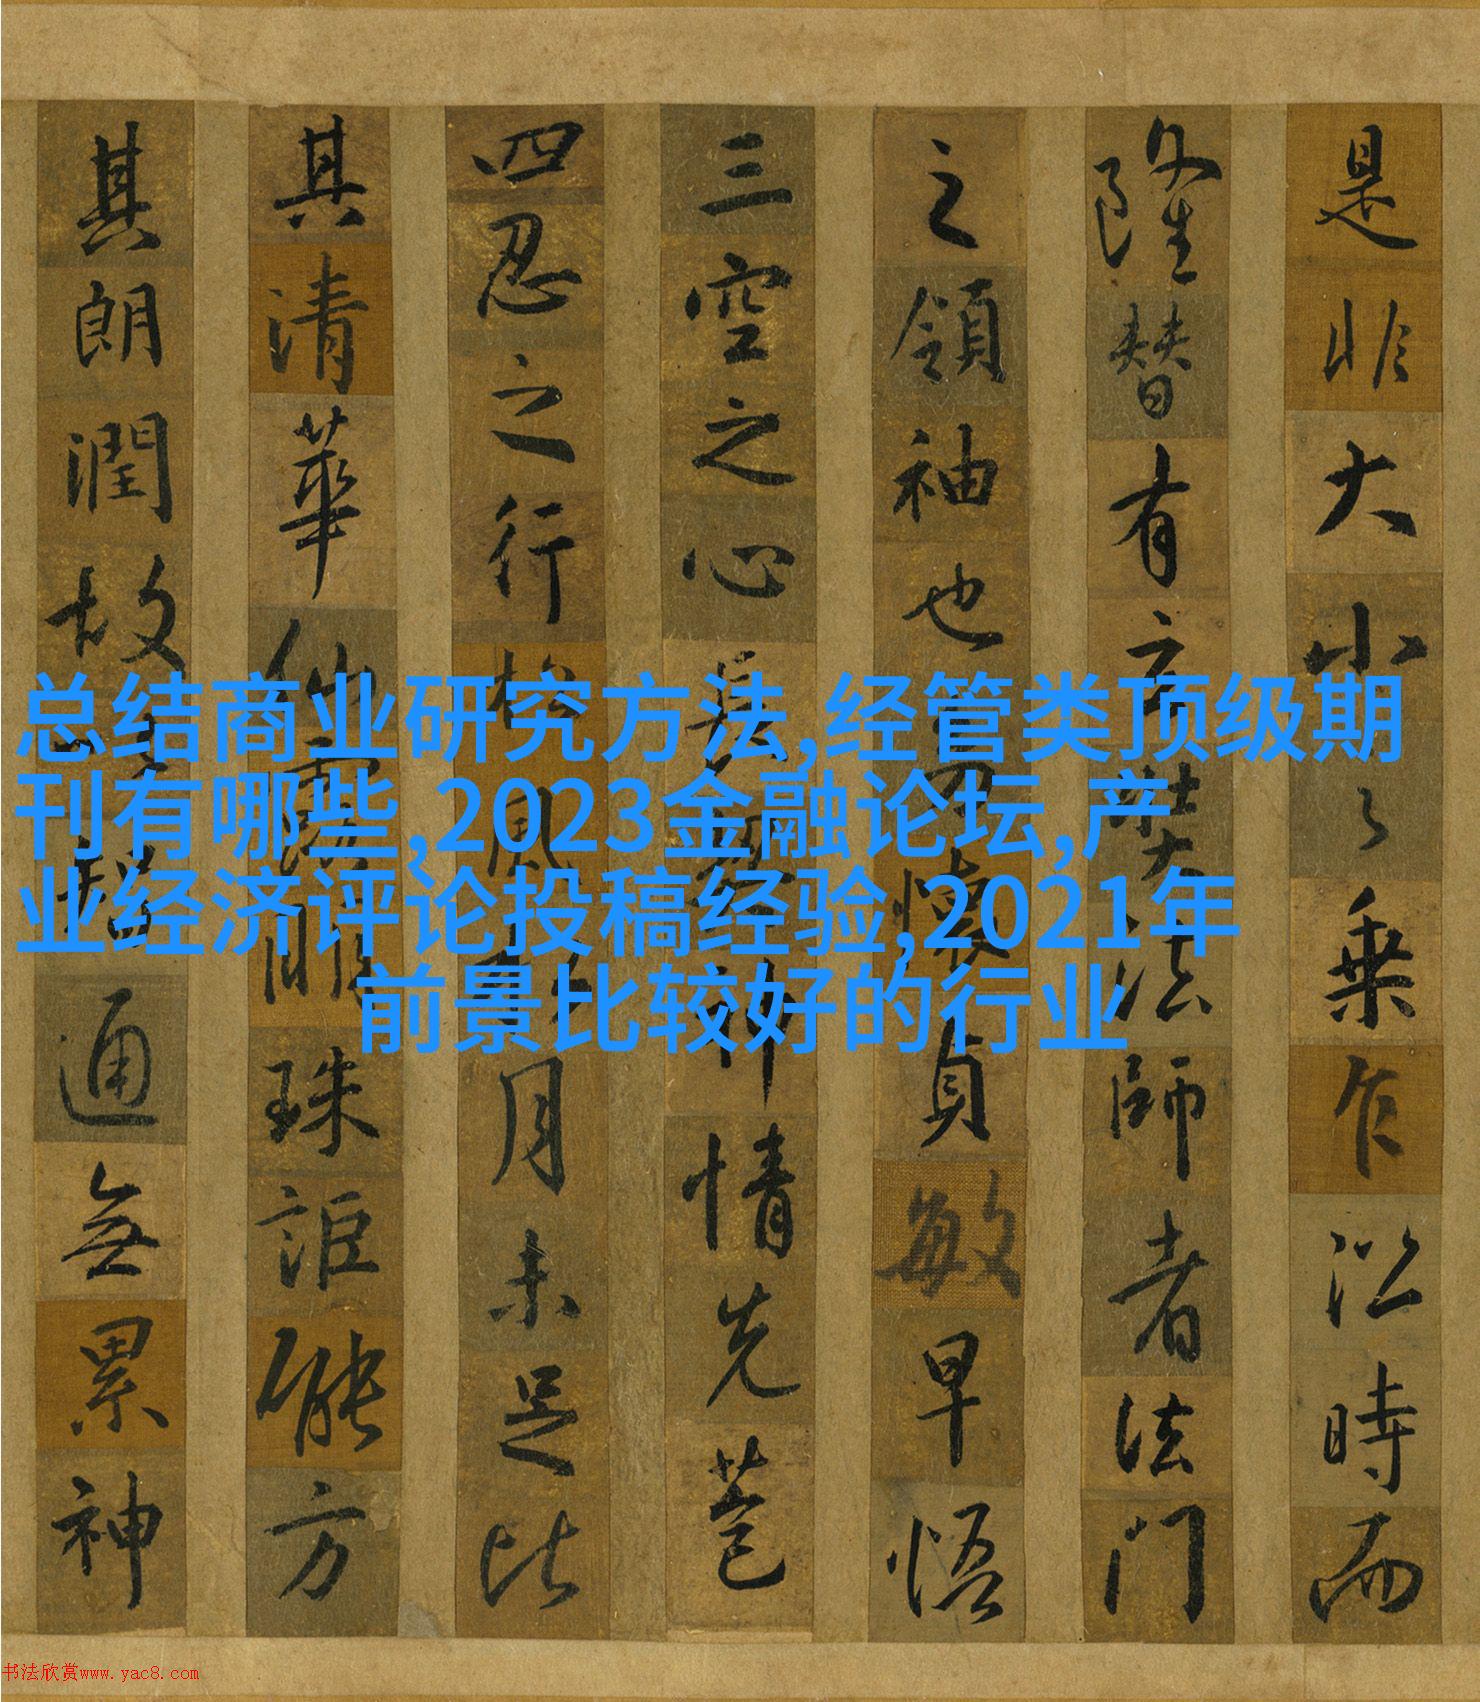 是非大小乘乍沿時而
隆替有玄奘法師者法門
之領袖也 懷貞敏早悟
三空之心長 神情先苞
四忍之行松風 月未足比
其清華仙露明珠詎能方
其朗潤故 智通無累神
总结商业研究方法,经管类顶级期
刊有哪些,2023金融论坛,产
业经济评论投稿经验,2021年
前景比较好的行业
书法欣赏www.yac8.com